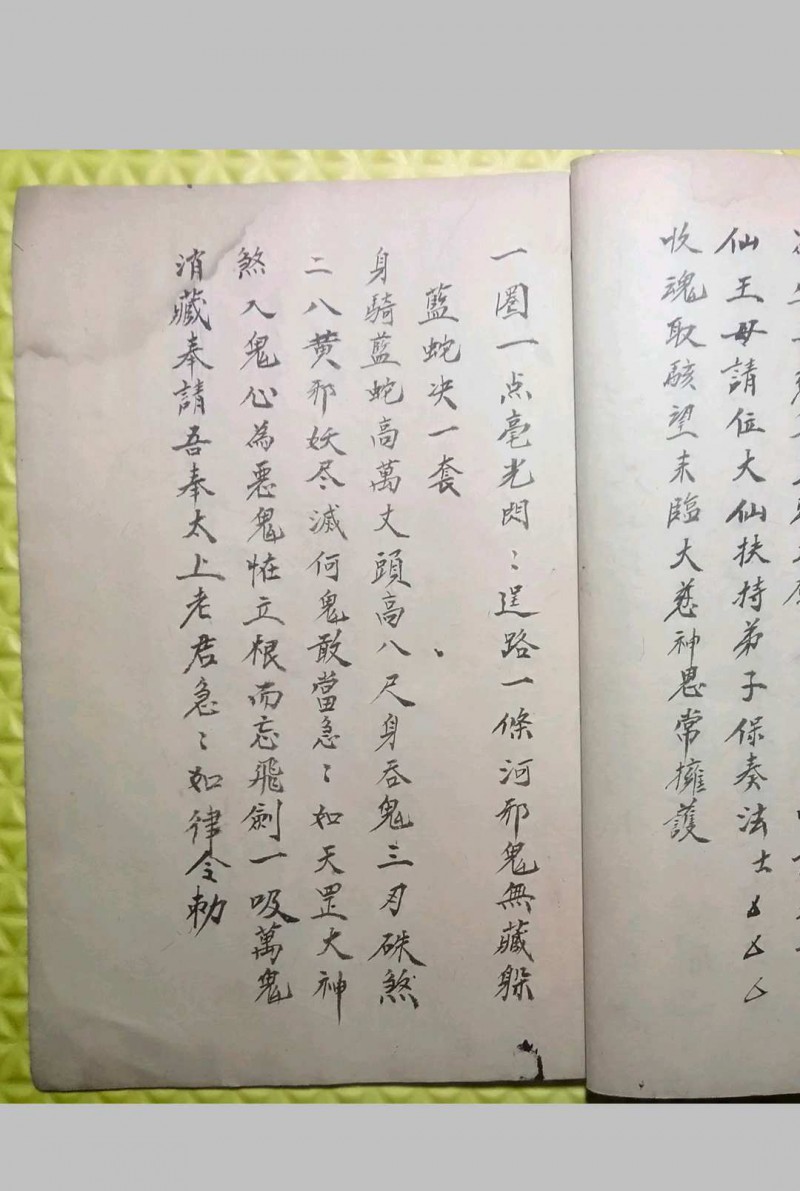 仙王母請位大仙扶持弟子保奏法士
收魂取駭望來臨大慈神恩常擁護
一圈一点毫光閃〻逞路一條河邪鬼無藏躲
藍蛇决一套
身騎藍蛇高萬丈頭高八尺身吞鬼三刃硃煞
二八黄邪妖尽滅何鬼敢當急〻如天罡大神
煞入鬼心為惡鬼恠立根而忘飛劍一吸萬鬼
消藏奉請吾奉太上老君急〻如律令勅